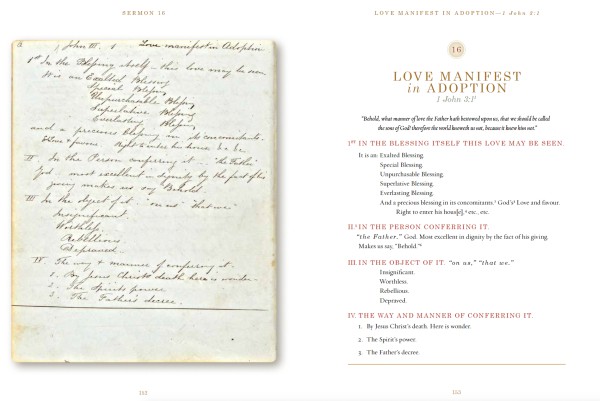 SERMON 16
8 John III. 1 Love manifest in Adoption
1st In the Blessing itself – this love may be seen
It is an Exalted Blessing
Special Blessing
Unpurchasable Blessing
Superlative Blessing
Everlasting Blessing
and a precious blessing in its concomitants.
Love & favour. Right to enter his house &c &c
II In the Person conferring it – "the Father"
God – most excellent in dignity by the fact of his
giving makes us say Behold.
III In the object of it. "on us" "that we"
Insignificant.
Worthless.
Rebellious
Depraved.
IV The way & manner of conferring it.
1. By Jesus Christ's death here is wonder.
2. The Spirit's power
3. The Father's decree.
152
LOVE MANIFEST IN ADOPTION—1 John 3:1
16
LOVE MANIFEST
in ADOPTION
1 John 3:1¹
"Behold, what manner of love the Father hath bestowed upon us, that we should be called
the sons of God: therefore the world knoweth us not, because it knew him not."
1ST IN THE BLESSING ITSELF THIS LOVE MAY BE SEEN.
It is an: Exalted Blessing.
Special Blessing.
Unpurchasable Blessing.
Superlative Blessing.
Everlasting Blessing.
And a precious blessing in its concomitants.² God's³ Love and favour.
Right to enter his hous[e],⁴ etc., etc.
II.⁵ IN THE PERSON CONFERRING IT.
"the Father." God. Most excellent in dignity by the fact of his giving.
Makes us say, "Behold."⁶
III. IN THE OBJECT OF IT. "on us," "that we."
Insignificant.
Worthless.
Rebellious.
Depraved.
IV. THE WAY AND MANNER OF CONFERRING IT.
1. By Jesus Christ's death. Here is wonder.
2. The Spirit's power.
3. The Father's decree.
153